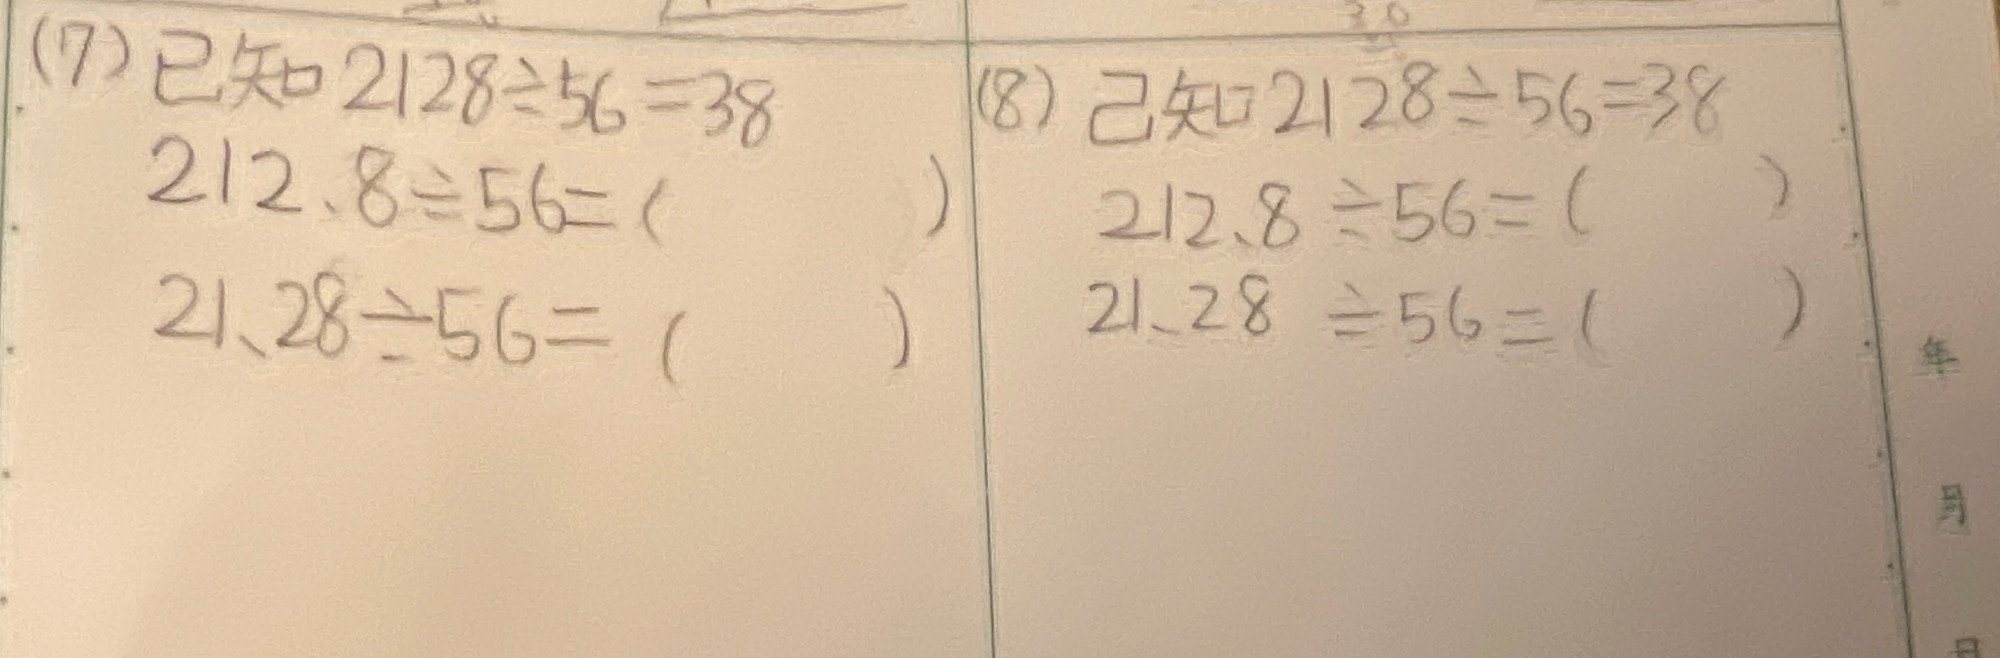 (7) 已知2128÷56=38
212.8÷56=( )
21.28÷56=( )
(8) 已知2128÷56=38
212.8÷56=( )
21.28÷56=( )
年